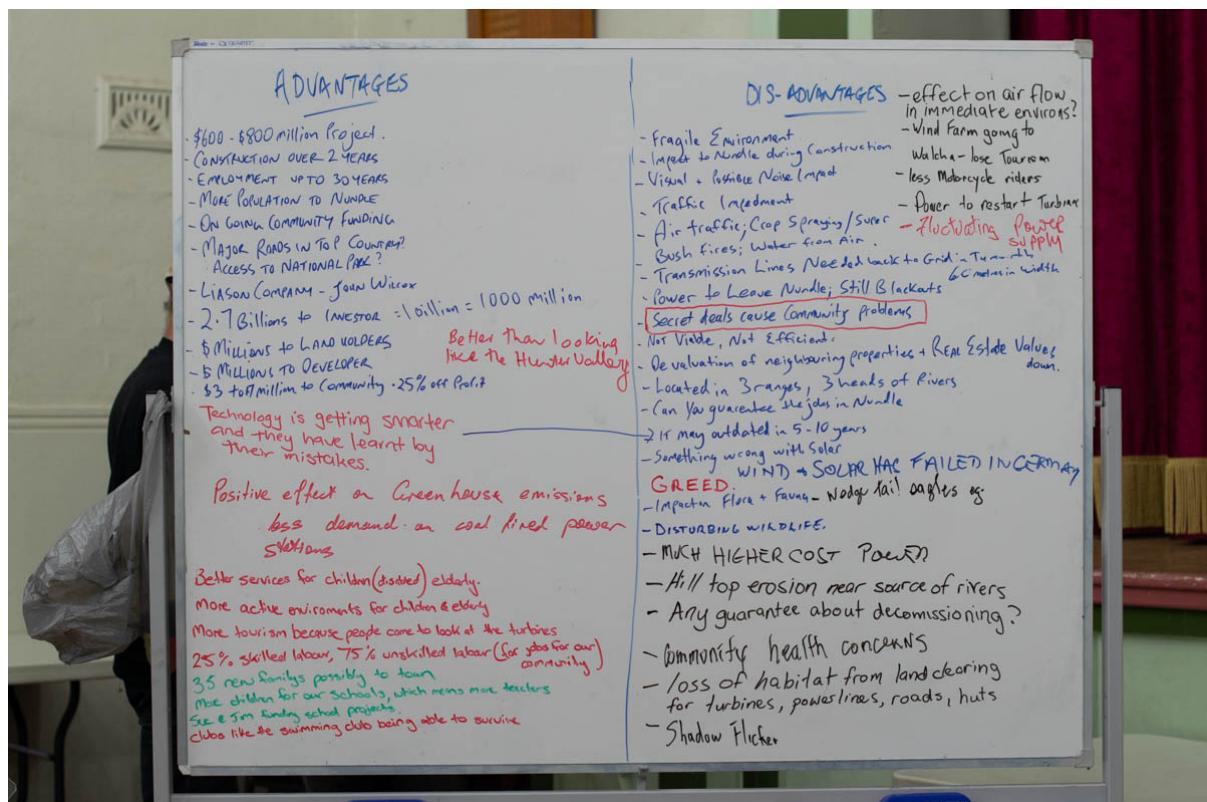 ADVANTAGES
- $600 - $800 million Project.
- CONSTRUCTION OVER 2 YEARS
- EMPLOYMENT UP TO 30 YEARS
- MORE POPULATION TO NUNDLE
- ON GOING COMMUNITY FUNDING
- MAJOR ROADS IN TOP COUNTRY?
ACCESS TO NATIONAL PARK?
- LIASON COMPANY - JOHN WILCOX
- 2.7 Billions to INVESTOR = 1 billion = 1000 million
- $ Millions to LAND HOLDERS
- $ MILLIONS TO DEVELOPER
- $3 to million to Community · 25% off Profit
Better than looking
like the Hunter Valley
Technology is getting smarter
and they have learnt by
their mistakes.
Positive effect on Greenhouse emissions
less demand on coal fired power
stations
Better services for children (disabled) elderly.
More active enviroments for children & elderly
More tourism because people come to look at the turbines
25% skilled labour, 75% unskilled labour (for jobs for our
community)
35 new familys possibly to town
More children for our schools, which means more teachers
Sue & Jim funding school projects.
clubs like the swimming club being able to survive
DIS-ADVANTAGES
- Fragile Environment
- Impact to Nundle during Construction
- Visual + Possible Noise Impact
- Traffic Impedment
- Air traffic; Crop Spraying/Super
Bush fires; Water from Air.
- Transmission Lines Needed back to Grid in
60 metres in width
- Power to Leave Nundle; Still Blackouts
- Secret deals cause Community problems
- Not Viable, Not Efficient.
- Devaluation of neighbouring properties + REAL ESTATE VALUES
down.
- Located in 3 ranges, 3 heads of Rivers
- Can you guarentee the jobs in Nundle
- IT may outdated in 5-10 years
- Something wrong with Solar
WIND & SOLAR HAS FAILED IN GERMANY
GREED.
- Impact on Flora + Fauna - Wedge tail eagles eg.
- DISTURBING WILDLIFE.
- MUCH HIGHER COST POWER
- Hill top erosion near source of rivers
- Any guarantee about decomissioning?
- Community health concerns
- loss of habitat from land clearing
for turbines, powerlines, roads, huts
- Shadow Flicker
- effect on air flow
in immediate environs?
- Wind Farm going to
Walcha - lose Tourism
- less Motorcycle riders
- Power to restart Turbines
- Fluctuating Power
supply